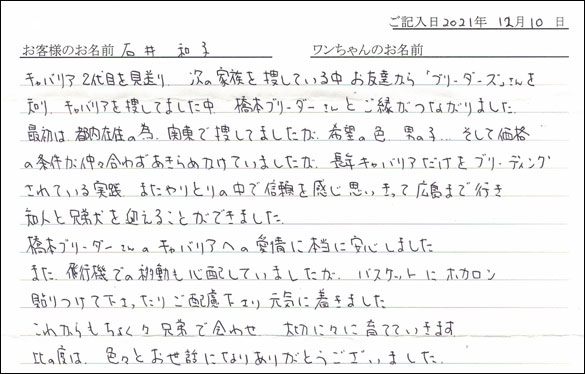 ご記入日 2021年 12月 10日
お客様のお名前 石井 和子 ワンちゃんのお名前
キャバリア2代目を見送り 次の家族を捜している中 お友達から「ブリーダーズ」さんを
知り、キャバリアを捜してました中 橋本ブリーダーさんとご縁がつながりました
最初は都内在住の為、関東で捜してましたが、希望の色 男の子… そして価格
の条件が仲々合わずあきらめかけていましたが、長年キャバリアだけをブリーディング
されている実践 またやりとりの中で信頼を感じ思いきって広島まで行き
知人と兄弟犬を迎えることができました
橋本ブリーダーさんのキャバリアへの愛情に本当に安心しました
また、飛行機での移動も心配していましたが、バスケットにホカロン
貼りつけて下さったりご配慮下さり元気に着きました
これからもちょくちょく兄弟で会わせ 大切に々に育てていきます
此の度は、色々とお世話になりありがとうございました。